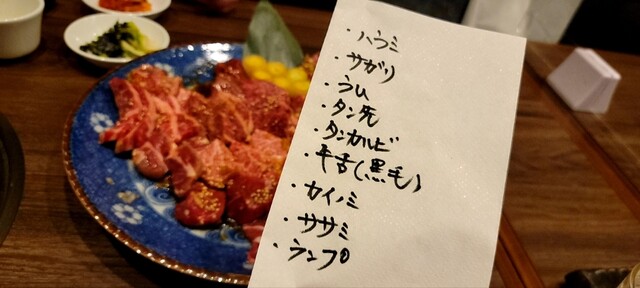 ・ハラミ
・サガリ
・タン先
・タンカルビ
・牛舌(黒毛)
・カイノミ
・ササミ
・ランプ